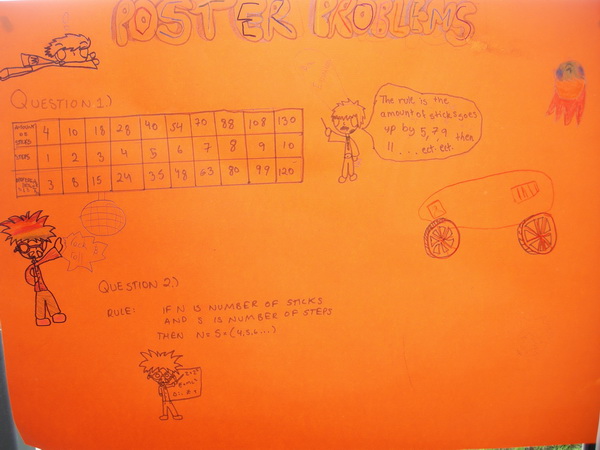 POSTER PROBLEMS
QUESTION 1.)
4 10 18 28 40 54 70 88 108 130
STEPS 1 2 3 4 5 6 7 8 9 10
3 8 15 24 35 48 63 80 99 120
The rule is the
amount of sticks goes
up by 5, 7, 9, then
11 ... ect. ect.
QUESTION 2.)
RULE: IF N IS NUMBER OF STICKS
AND S IS NUMBER OF STEPS
THEN N=S×(4,5,6...)